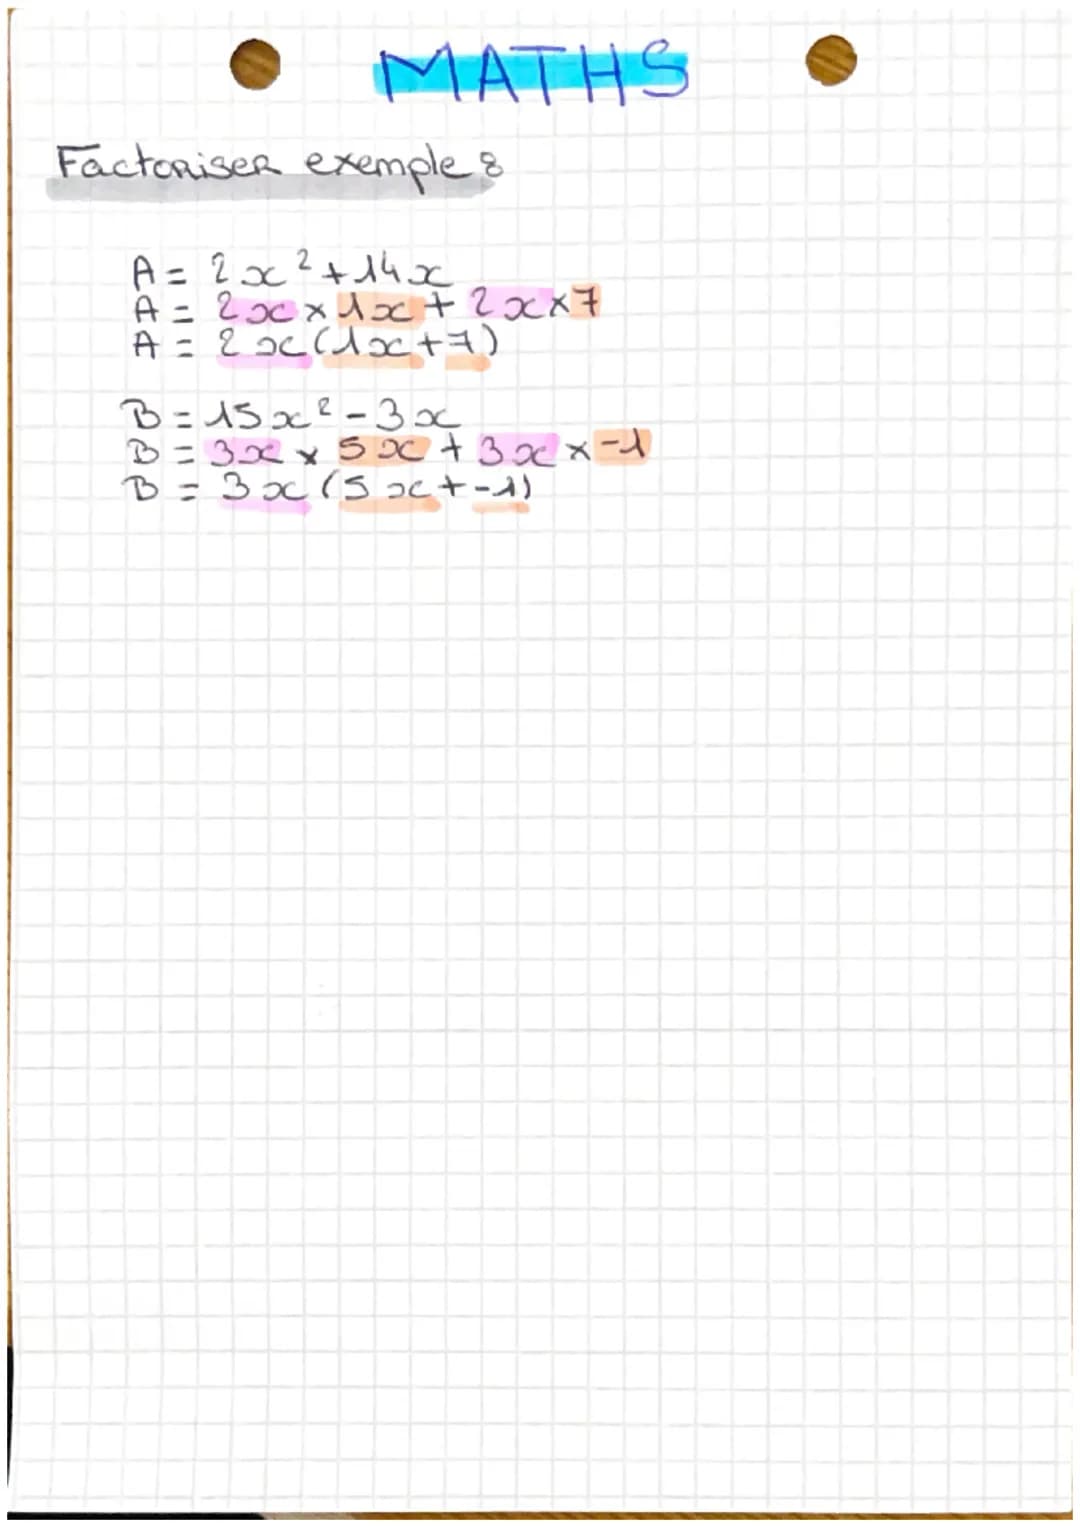 MATHS
Factoriser exemple :
A = 2x² + 14x
A = 2x × 1x + 2x × 7
A = 2x (1x + 7)
B = 15x² - 3x
B = 3x × 5x + 3x × -1
B = 3x (5x + -1)